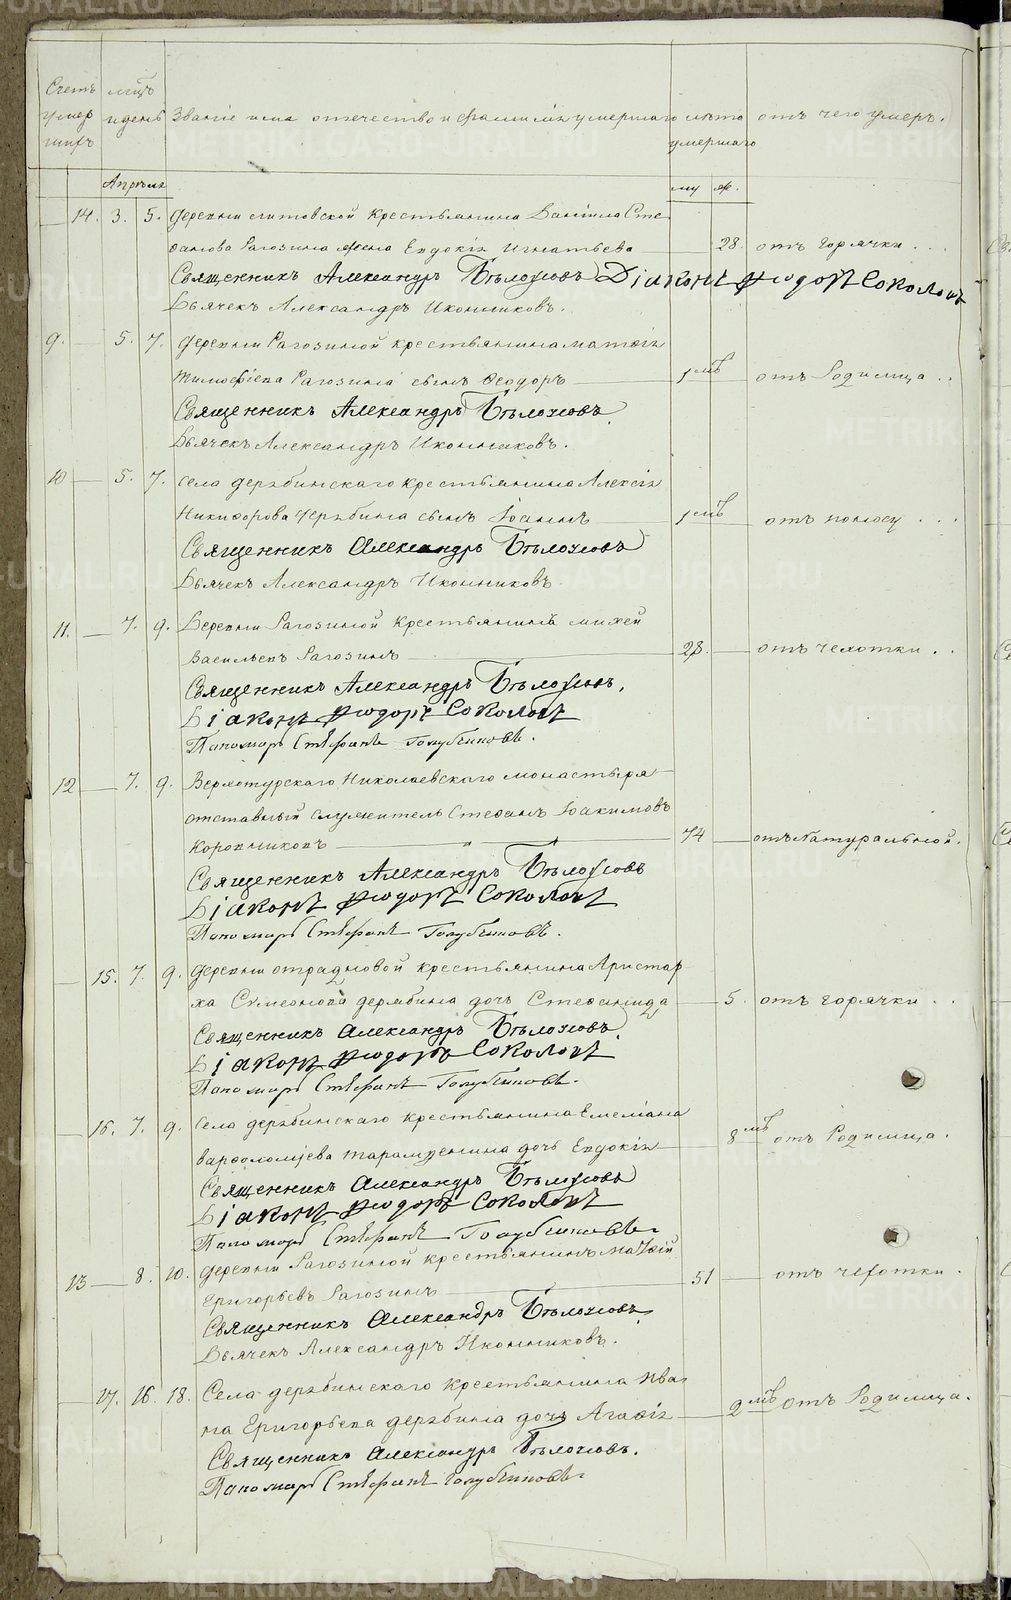 Счетъ умер шихъ
мцъ и день
Званіе имя отечество и фамилія умершаго
лѣто умершаго
отъ чего умеръ.
Апрѣля
му же.
14. 3. 5. деревни Титовской крестьянина Даніила Сте
фанова Рагозина жена Евдокія Игнатьева 28. отъ горячки . . .
Священникъ Александръ Бѣлоусовъ Діаконъ Ѳеодоръ Соколовъ
Дьячекъ Александръ Иконниковъ.
9. 5. 7. деревни Рагозиной крестьянина Матѳія
Тимоѳіева Рагозина сынъ Ѳеодоръ 1 мцъ отъ Родимца . .
Священникъ Александръ Бѣлоусовъ
Дьячекъ Александръ Иконниковъ.
10 5. 7. села дерябинскаго крестьянина Алексія
Никифорова Дерябина сынъ Іоаннъ 1 мцъ отъ поносу . . .
Священникъ Александръ Бѣлоусовъ
Дьячекъ Александръ Иконниковъ.
11. 7. 9. Деревни Рагозиной крестьянинъ Михей
Васильевъ Рагозинъ 28. отъ чехотки . .
Священникъ Александръ Бѣлоусовъ.
Діаконъ Ѳеодоръ Соколовъ
Пономарь Стефанъ Голубчиковъ.
12 7. 9. Верхотурскаго Николаевскаго монастыря
отставный служитель Стефанъ Іоакимовъ
Коровниковъ " 74 отъ натуральной.
Священникъ Александръ Бѣлоусовъ
Діаконъ Ѳеодоръ Соколовъ
Пономарь Стефанъ Голубчиковъ.
15. 7. 9. деревни отрадновой крестьянина Аристар
ха Симеонова дерябина дочь Стефанида 5. отъ горячки . .
Священникъ Александръ Бѣлоусовъ
Діаконъ Ѳеодоръ Соколовъ
Пономарь Стефанъ Голубчиковъ.
16. 7. 9. Села дерябинскаго крестьянина Емеліана
варѳоломіева дочь Евдокія 8 мцъ отъ Родимца.
Священникъ Александръ Бѣлоусовъ
Діаконъ Ѳеодоръ Соколовъ
Пономарь Стефанъ Голубчиковъ.
13 8. 10. деревни Рагозиной крестьянинъ
Григорьевъ Рагозинъ 51 отъ чехотки .
Священникъ Александръ Бѣлоусовъ
Дьячекъ Александръ Иконниковъ.
17. 16. 18. Села дерябинскаго крестьянина Ива
на Григорьева дерябина дочь Агафія 2 мцъ отъ Родимца.
Священникъ Александръ Бѣлоусовъ.
Пономарь Стефанъ Голубчиковъ.